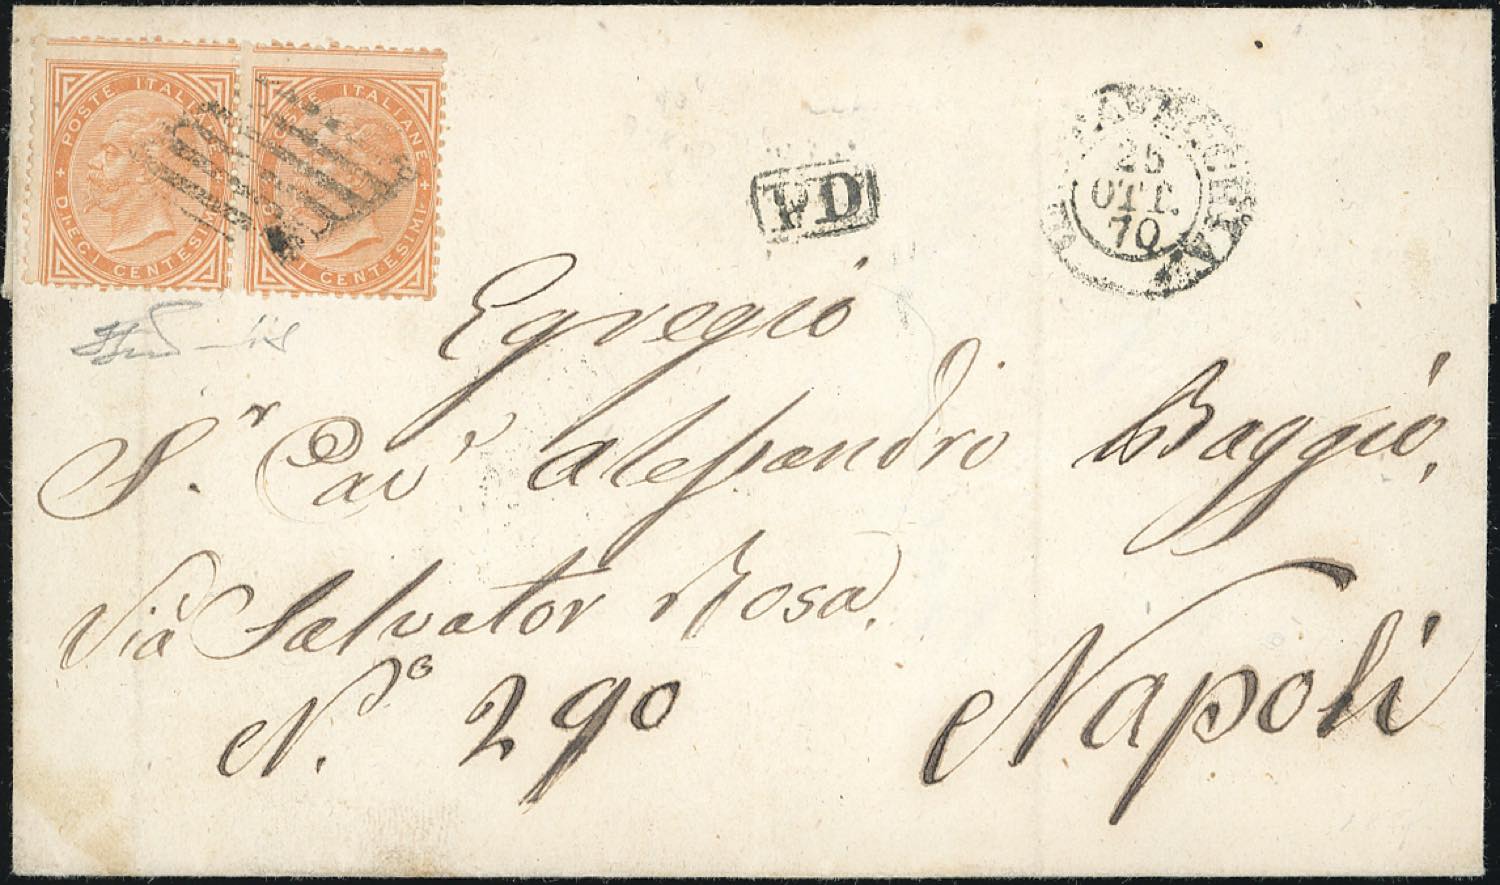 POSTE ITALIANE
DIECI CENTESIMI
POSTE ITALIANE
DIECI CENTESIMI
PD
CIVITAVECCHIA
25
OTT.
70
Egregio
S.r Cav Alessandro Baggio,
Via Salvator Rosa,
N.o 290
Napoli